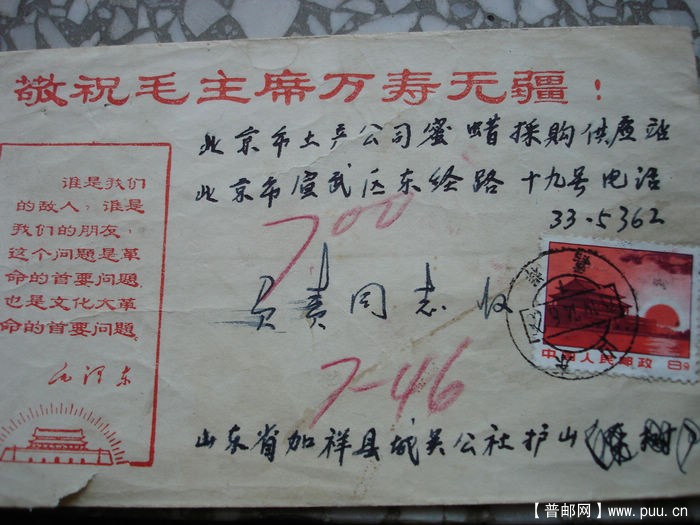 敬祝毛主席万寿无疆！
北京市土产公司蜜蜡採购供应站
北京市宣武区东经路十九号电话
33-5362
谁是我们
的敌人，谁是
我们的朋友，
这个问题是革
命的首要问题，
也是文化大革
命的首要问题。
毛泽东
700
负责同志收
7-46
中国人民邮政 8分
山东省加祥县 公社护山
【普邮网】www.puu.cn